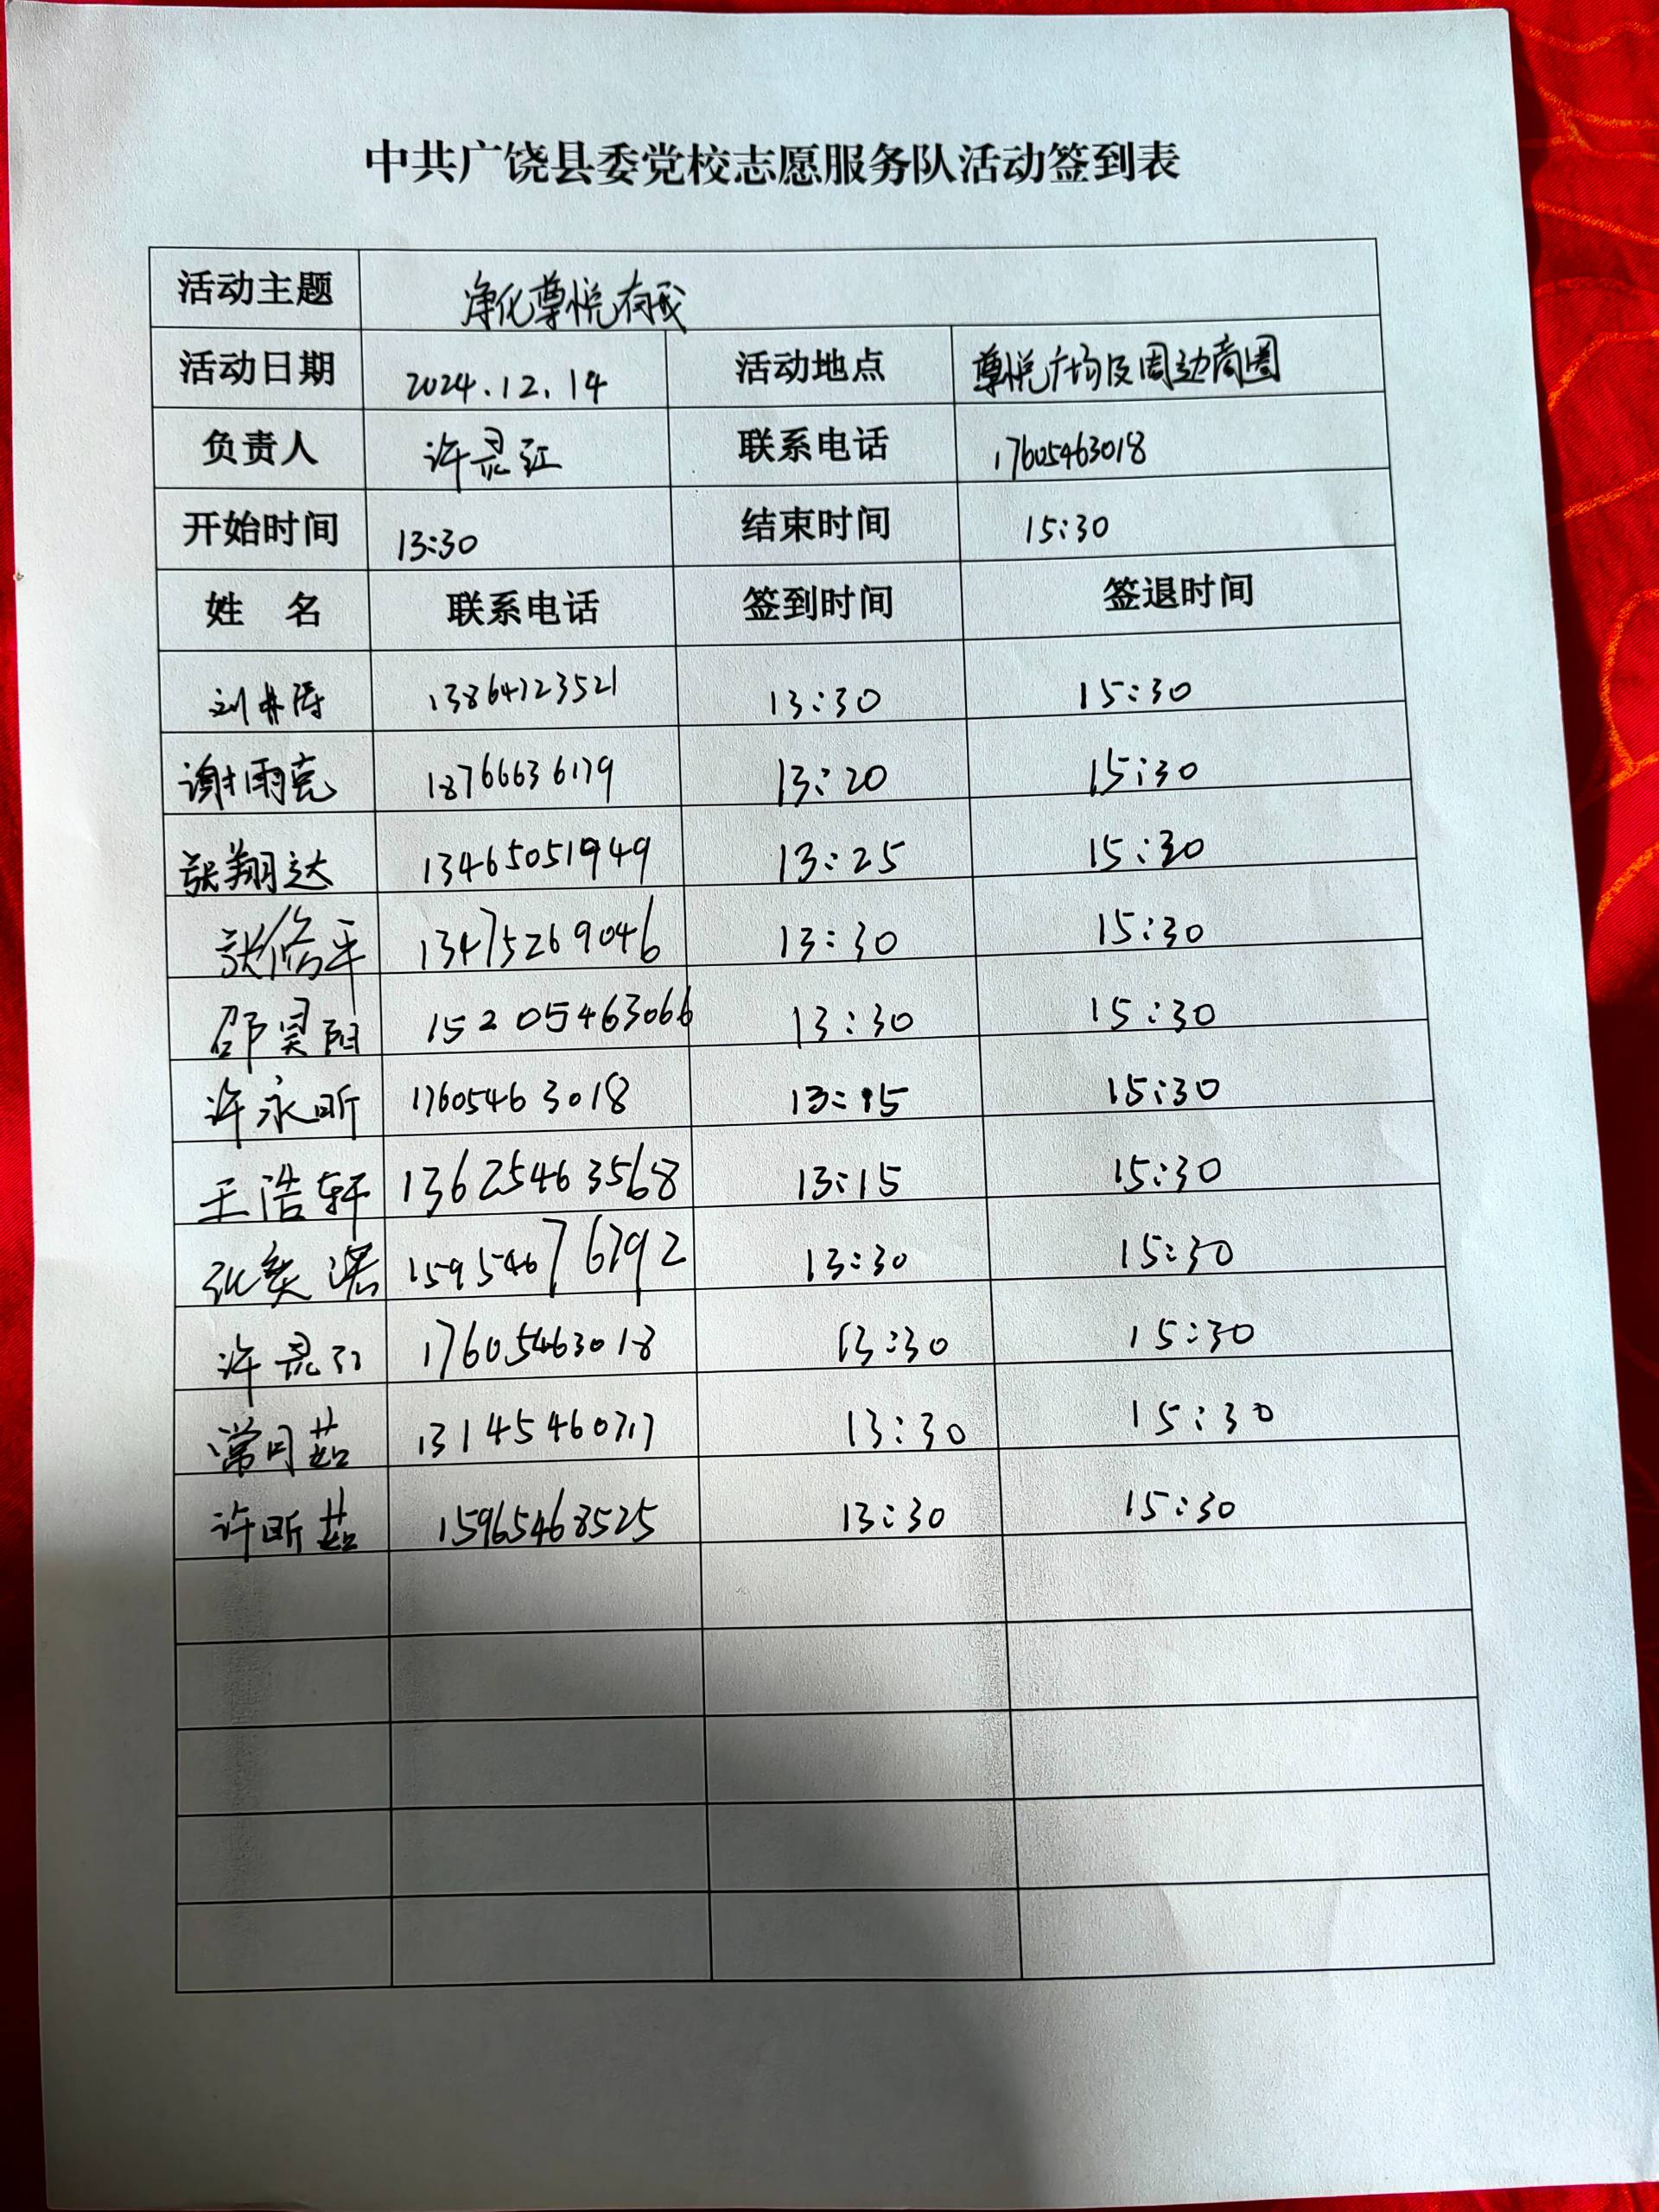 中共广饶县委党校志愿服务队活动签到表
活动主题 净化尊悦有我
活动日期 2024.12.14 活动地点 尊悦广场及周边商圈
负责人 许灵江 联系电话 17605463018
开始时间 13:30 结束时间 15:30
姓 名 联系电话 签到时间 签退时间
刘井涛 13864723521 13:30 15:30
谢雨克 18766636179 13:20 15:30
张翔达 13465051949 13:25 15:30
张修平 13475269046 13:30 15:30
邵昊阳 15205463066 13:30 15:30
许永昕 17605463018 13:15 15:30
王浩轩 13625463568 13:15 15:30
张奕 15954676792 13:30 15:30
许灵江 17605463018 13:30 15:30
常月茹 13145460717 13:30 15:30
许昕茹 15965468525 13:30 15:30